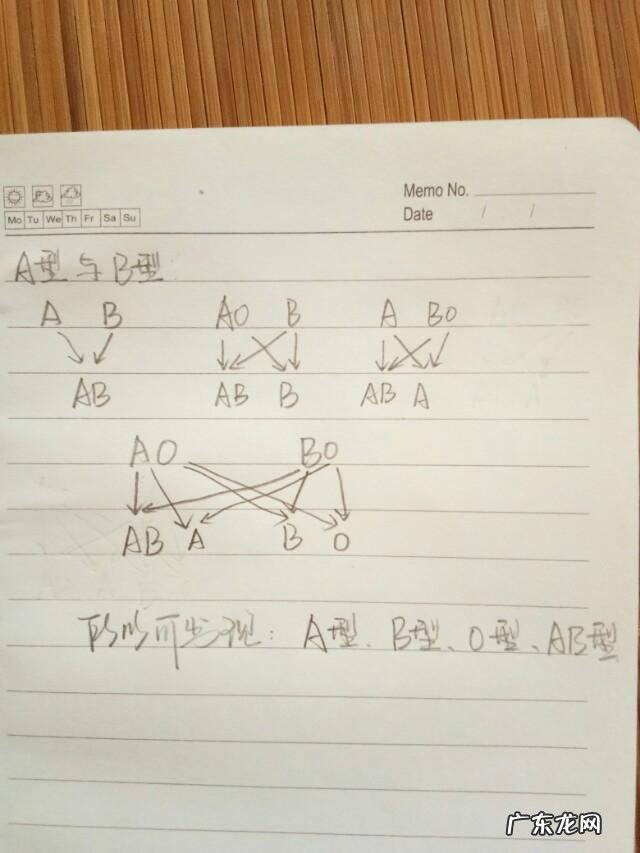 Memo No.
Mo Tu We Th Fr Sa Su
Date / /
A型与B型
A B AO B A BO
AB AB B AB A
AO BO
AB A B O
所以可出现: A型、B型、O型、AB型
广东龙网